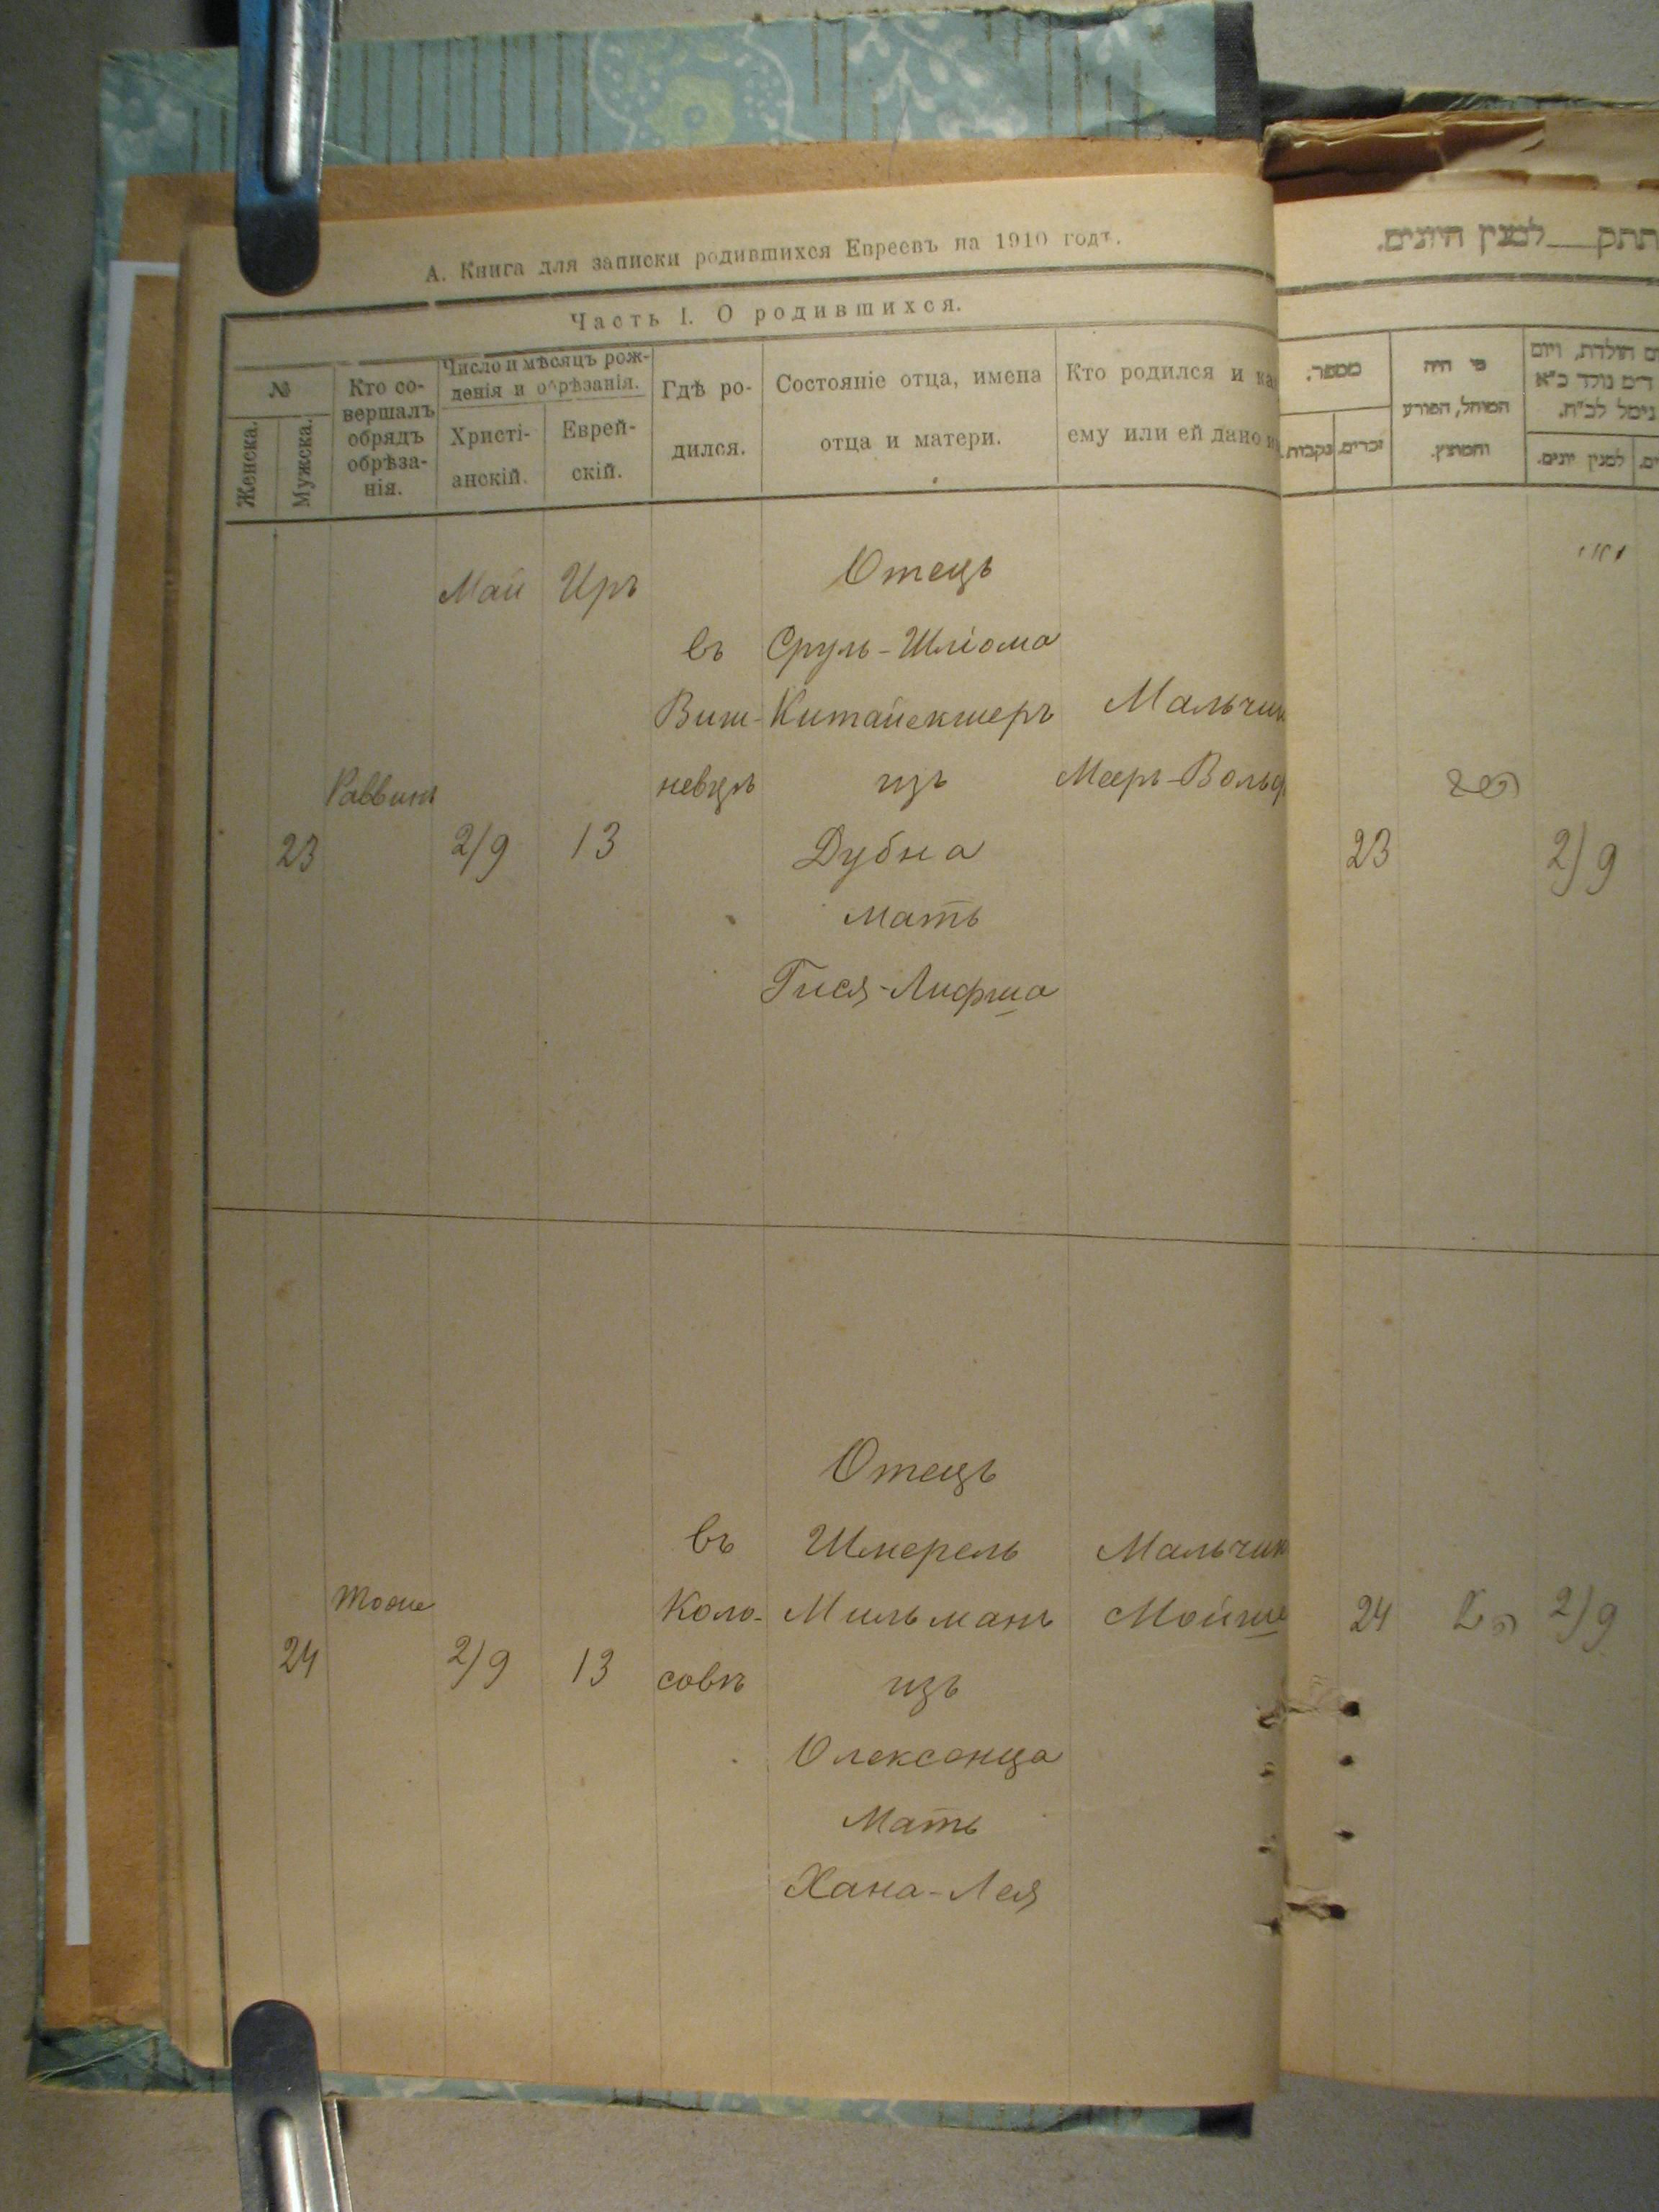 А. Книга для записки родившихся Евреевъ на 1910 годъ.
Часть I. О родившихся.
№
Женска.
Мужска.
Кто со-
вершалъ
обрядъ
обрѣза-
нія.
Число и мѣсяцъ рож-
денія и обрѣзанія.
Христі-
анскій.
Еврей-
скій.
Гдѣ ро-
дился.
Состояніе отца, имена
отца и матери.
Кто родился и ка
ему или ей дано и
Май Иръ
23
Раввинъ
2/9
13
въ
Виш-
невцѣ
Отецъ
Сруль-Шліома
Китайекшеръ
изъ
Дубна
Мать
Гися-Лифша
Мальчик
Мееръ-Вольф
24
тоже
2/9
13
въ
Коло-
совѣ
Отецъ
Шмерель
Мильманъ
изъ
Олексенца
Мать
Хана-Лея
Мальчик
Мойше
תתק למנין היונים.
מספר.
נקבות.
זכרים.
מי היה
המוהל, הפורע
והמוצץ.
ם הולדת, ויום
נימל לב״ח.
למנין יונים.
23
2/9
24
2/9